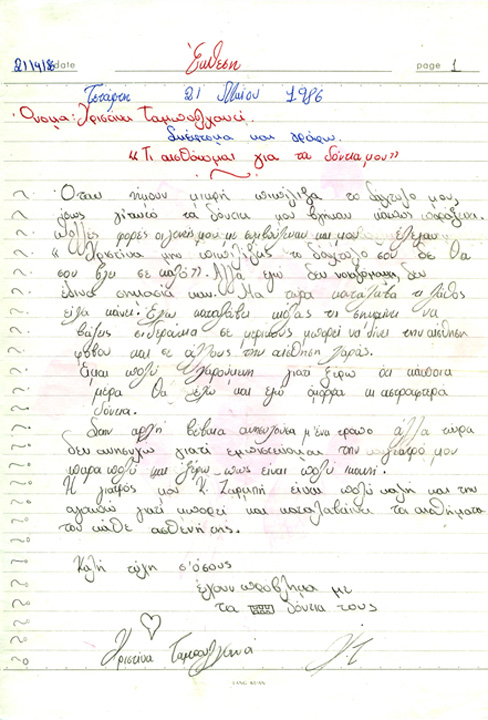 21/4/86 date
Έκθεση
page 1
Τετάρτη 21 Μαΐου 1986
Όνομα: Χριστίνα
Σκέφτομαι και γράφω.
«Τι αισθάνομαι για τα δόντια μου»
Όταν ήμουν μικρή πιπίλιζα το δάχτυλο μου,
ίσως γι'αυτό τα δόντια μου βγήκαν κάπως παράξενα.
Πολλές φορές οι γονείς μου με συμβούλευαν και μου έλεγαν:
«Χριστίνα μην πιπιλίζεις το δάχτυλο σου δε θα
σου βγει σε καλό». Αλλά εγώ δεν
έδινα σημασία και. Μα τώρα κατάλαβα το λάθος
είχα κάνει. Έχω καταλάβει καλά τι σημαίνει να
βάζεις σιδεράκια σε μερικούς μπορεί να δίνει την αίσθηση
φόβου και σε άλλους την αίσθηση χαράς.
Είμαι πολύ χαρούμενη γιατί ξέρω ότι κάποια
μέρα θα έχω και εγώ όμορφα κι αστραφτερά
δόντια.
Στην αρχή βέβαια ανησυχούσα μ'ένα τρόπο αλλά τώρα
δεν ανησυχώ γιατί εμπιστεύομαι την μου
πάρα πολύ και ξέρω πως είναι πολύ ικανή.
Η γιατρός μου Κ. Ζαρμπή είναι πολύ καλή και την
αγαπώ γιατί μπορεί και καταλαβαίνει τα αισθήματα
του κάθε ασθενή της.
Καλή τύχη σ'όσους
έχουν πρόβλημα με
τα δόντια τους
Χριστίνα
Χ.Τ
YANG KUAN